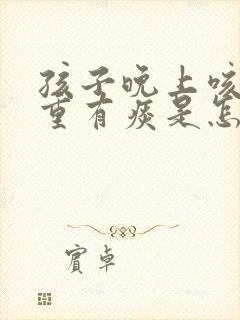 孩子晚上咳
重有痰是怎
賓卓